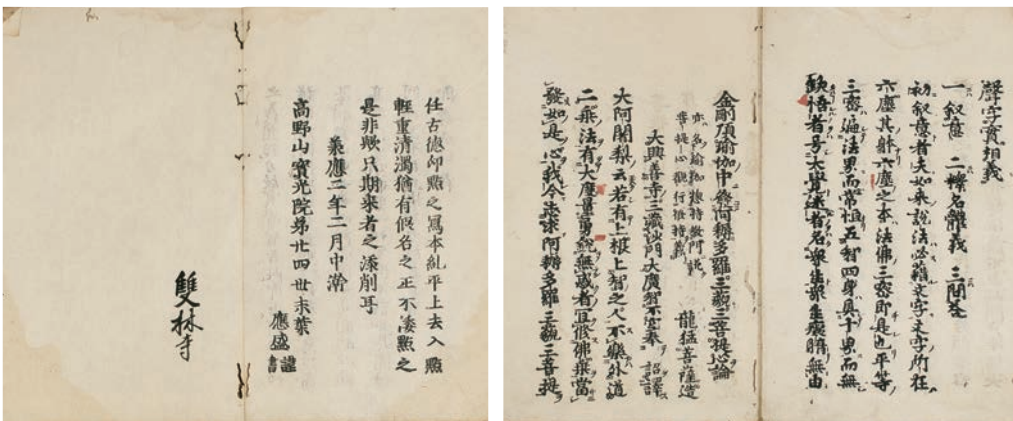 聲字實相義
一叙意 二釋名體義 三問荅
初叙意者夫如來說法必藉文字文字所在
六塵其躰六塵之本法佛三密即是也平等
三密遍法界而常恒五智四身具十界而無
缺悟者号大覺迷者名衆生衆生癡暗無由
金剛頂瑜伽中發阿耨多羅三藐三菩提心論
亦名瑜伽摠持教門說
菩提心觀行修持義
龍猛菩薩造
大興善寺三藏沙門大廣智不空奉 詔譯
大阿闍梨云若有上根上智之人不樂外道
二乘法有大度量勇銳無惑者宜修佛乘當
發如是心我今志求阿耨多羅三藐三菩提
任古德仰點之寫本糺平上去入點
輕重清濁猶有假名之正不湊點之
是非歟只期来者之添削耳
承應二年二月中澣
高野山寶光院第廿四世末葉
應盛 謹書
雙林寺